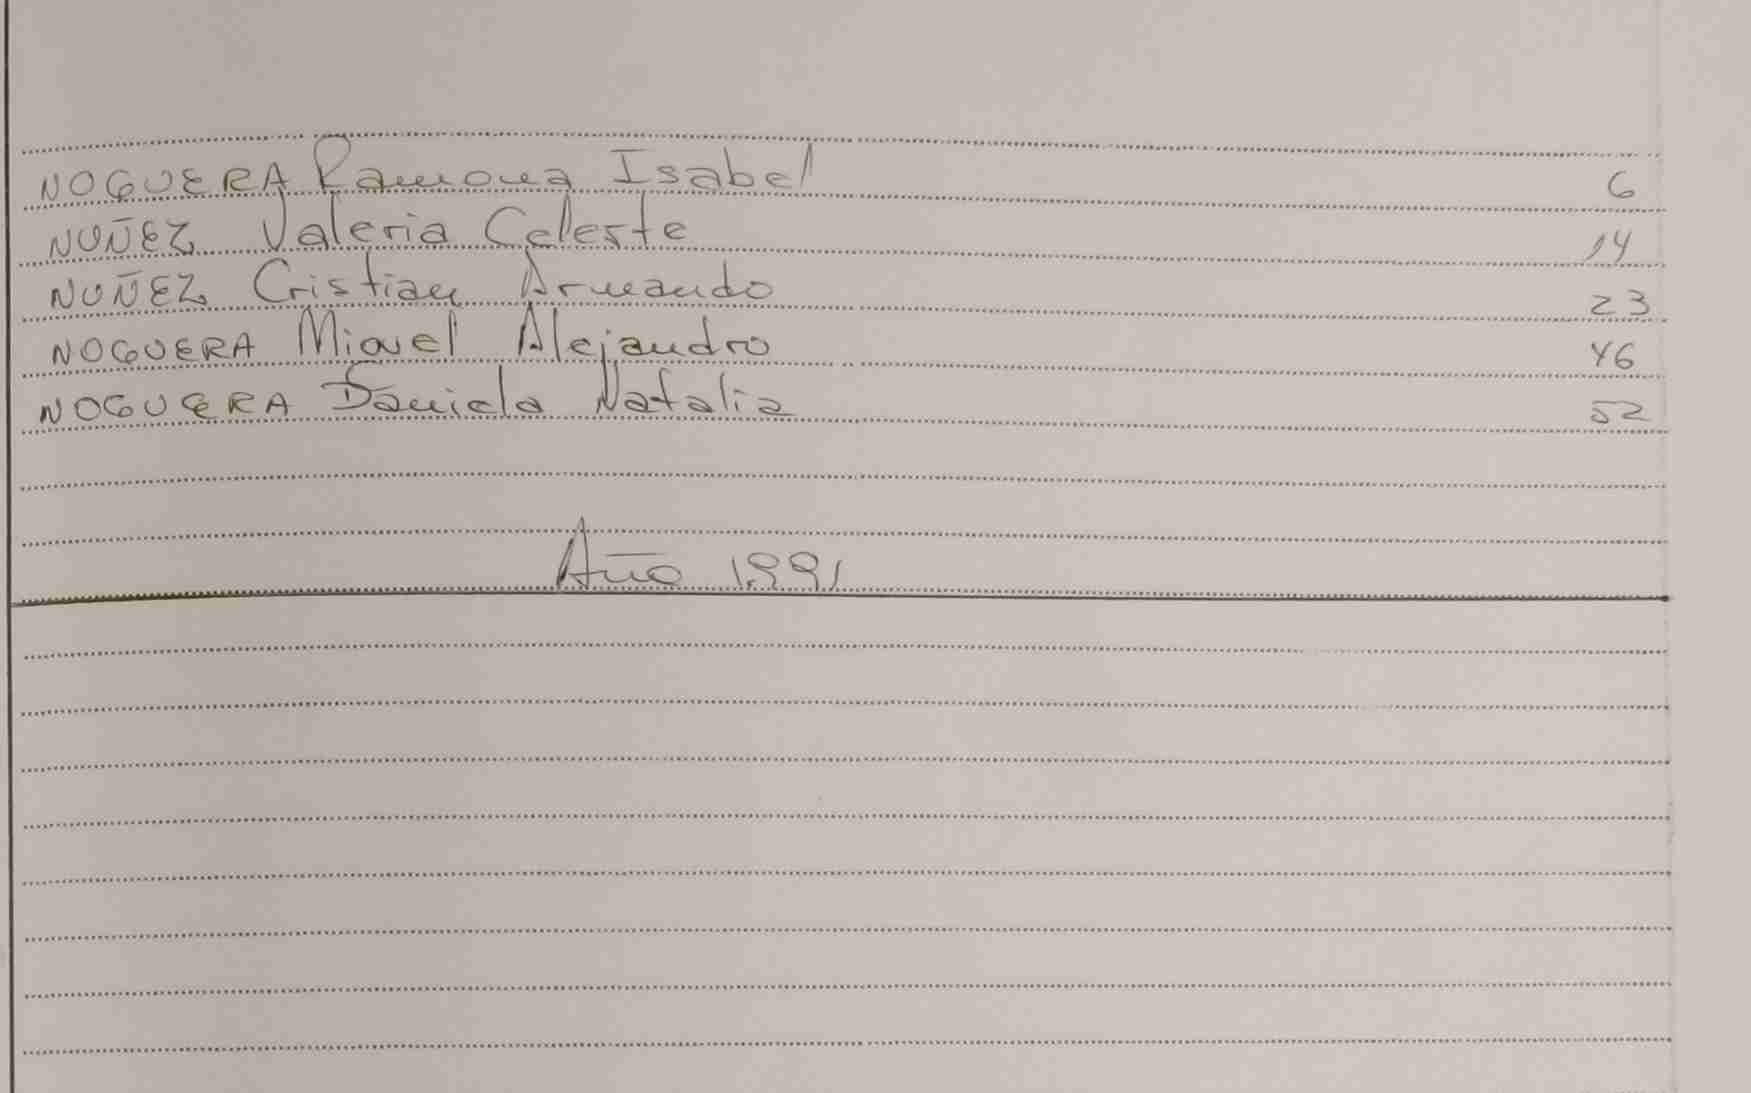 NOGUERA Ramona Isabel 6
NUÑEZ Valeria Celeste 14
NUÑEZ Cristian Armando 23
NOGUERA Miguel Alejandro 46
NOGUERA Daniela Natalia 52
Año 1991